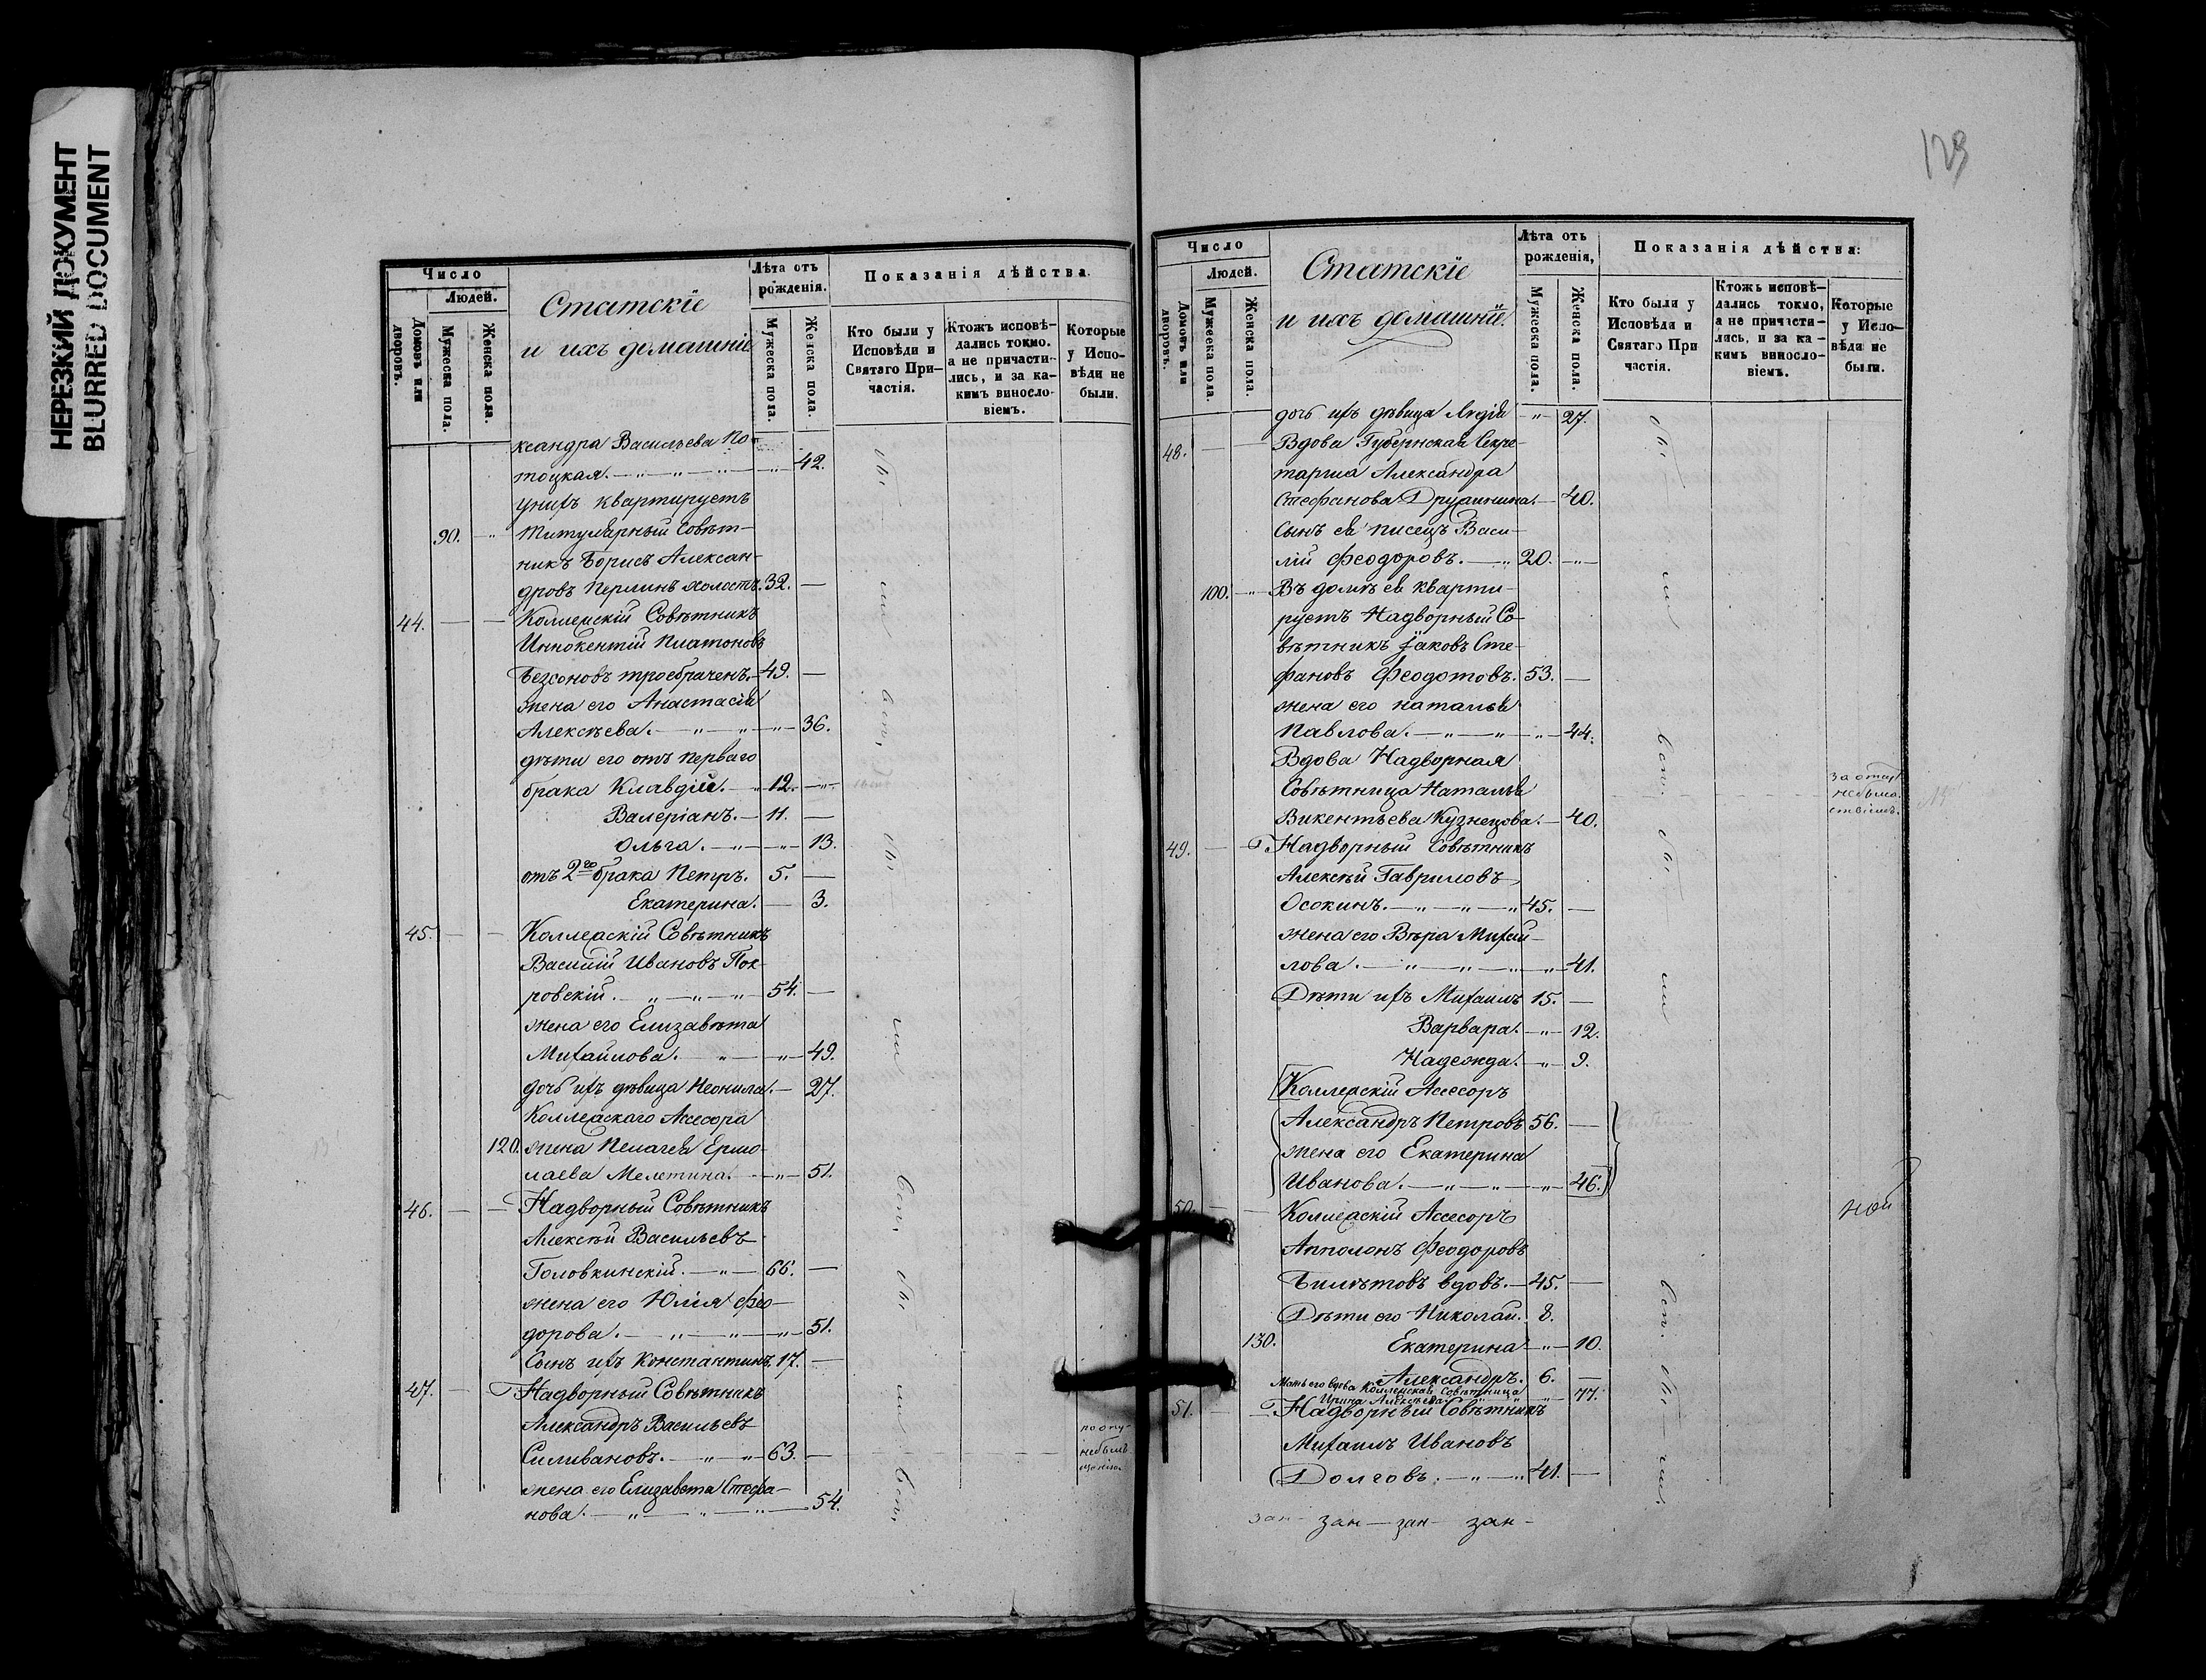 НЕРЕЗКИЙ ДОКУМЕНТ
BLURRED DOCUMENT
Число
Людей.
Домовъ или дворовъ.
Мужеска пола.
Женска пола.
Статскіе
и ихъ домашніе
Лѣта отъ рожденія.
Мужеска пола.
Женска пола.
Показанія дѣйства.
Кто были у Исповѣди и Святаго При-
частія.
Ктожъ исповѣ-
дались токмо.
а не причасти-
лись, и за ка-
кимъ винosло-
віемъ.
Которые
у Испо-
вѣди не
были.
ксандра Васильева По-
тоцкая. — „ — „ — „ — „ — 42.
у нихъ квартируетъ
90. — „ Титулярный Совѣт-
никъ Борисъ Алексан-
дровъ Перминъ холостъ. 32. —
44. — — Коллежскій Совѣтникъ
Иннокентій Платоновъ
Безсоновъ троебраченъ. 49. —
жена его Анастасія
Алексѣева. — „ — „ — „ — 36.
дѣти его отъ перваго
брака Клавдій. — „ 12. — „ —
Валеріанъ. — 11. —
Ольга. — „ — „ — 13.
отъ 2го брака Петръ. 5. —
Екатерина. — 3.
45. — — Коллежскій Совѣтникъ
Василій Ивановъ Пок-
ровскій. — „ — „ — „ 54. —
жена его Елизавѣта
Михайлова. — „ — „ — 49.
дочь ихъ дѣвица Неонила. — 27.
Коллежскаго Ассесора
120. жена Пелагея Ермо-
лаева Мелетина. — „ — 51.
46. — — Надворный Совѣтникъ
Алексѣй Васильевъ
Головкинскій. — „ — 66. —
жена его Юлія Фео-
дорова. — „ — „ — „ — 51.
Сынъ ихъ Константинъ. 17. —
47. — Надворный Совѣтникъ
Александръ Васильевъ
Силивановъ. — „ — „ — 63. —
жена его Елизавета Стефа-
нова. — „ — „ — „ — 54.
по опу-
небылъ
щенію.
129
Число
Людей.
Домовъ или дворовъ.
Мужеска пола.
Женска пола.
Статскіе
и ихъ домашніе.
Лѣта отъ рожденія,
Мужеска пола.
Женска пола.
Показанія дѣйства:
Кто были у
Исповѣди и
Святаго При
частія.
Ктожъ исповѣ-
дались токмо,
а не причасти-
лись, и за ка-
кимъ винoсло-
віемъ.
Которые
у Испо-
вѣди не
были.
дочь ихъ дѣвица Лидія — „ — 27.
48. — — Вдова Губернская Секре-
тарша Александра
Стефанова Дружинина. — 40.
Сынъ ея писецъ Васи-
лій Феодоровъ. — „ 20. — „ —
100. — „ — Въ домѣ ея кварти-
руетъ Надворный Со-
вѣтникъ Іаковъ Сте-
фановъ Феодотовъ. 53. —
жена его Наталья
Павлова. — „ — „ — „ — 44.
Вдова Надворная
Совѣтница Наталья
Викентьева Кузнецова. — 40.
49. — Надворный Совѣтникъ
Алексѣй Гавриловъ
Осокинъ. — „ — „ — „ 45. —
жена его Вѣра Михай-
лова. — „ — „ — „ — 41.
Дѣти ихъ Михаилъ 15. —
Варвара. — „ — 12.
Надежда. — „ — 9.
Коллежскій Ассесоръ
Александръ Петровъ 56. —
жена его Екатерина
Иванова. — „ — „ — „ — 46.
50. — — Коллежскій Ассесоръ
Апполонъ Феодоровъ
Билѣтовъ вдовъ. — 45. —
Дѣти его Николай. 8.
130. Екатерина — „ — 10.
Александръ. 6. —
Мать его вдова Коллежская Совѣтница
Ирина Алексѣева „ — 77.
51. — — Надворный Совѣтникъ
Михаилъ Ивановъ
Долговъ. — „ — „ 41. —
зан — зан — зан — зан —